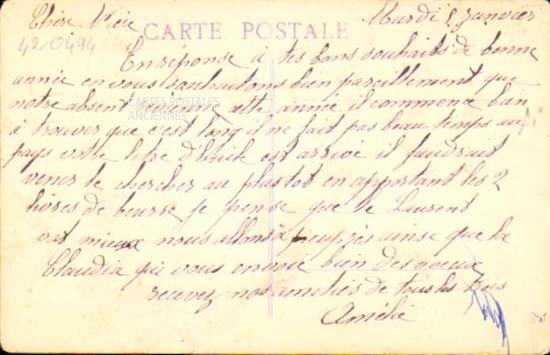 Mardi 8 Janvier
Chère
CARTE POSTALE
42/0494
En réponse à tes bons souhaits de bonne
année en vous souhaitons bien pareillement que
notre absent cette année il commence bien
CARTES POSTALES
ANCIENNES
à trouver que c'est long il ne fait pas beau temps au
pays votre litre d'huile est arrivé il faudrait
venir le chercher au plus tot en apportant les 2
livres de beurre je pense que le Laurent
vat mieux nous allons à peu près ainsi que la
Claudia qui vous envoie bien des voeux
recevez nos amitiés de tous les trois
Amélie